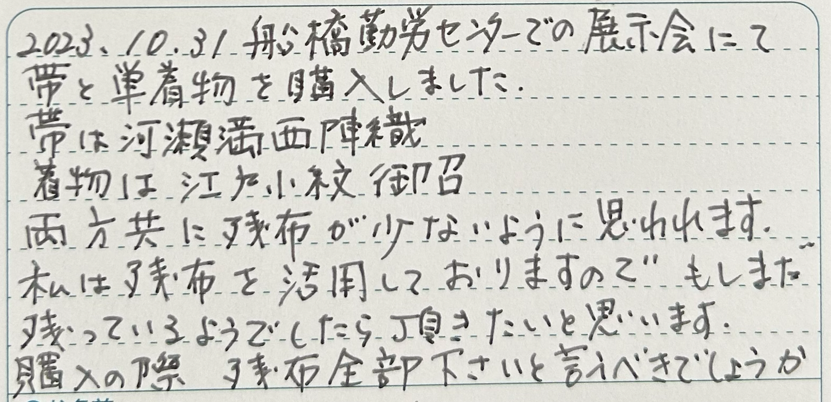 2023.10.31 船橋勤労センターでの展示会にて
帯と単着物を購入しました.
帯は河瀬満西陣織
着物は江戸小紋御召
両方共に残布が少ないように思われます.
私は残布を活用しておりますので もしまだ
残っているようでしたら頂きたいと思います.
購入の際 残布全部下さいと言うべきでしょうか